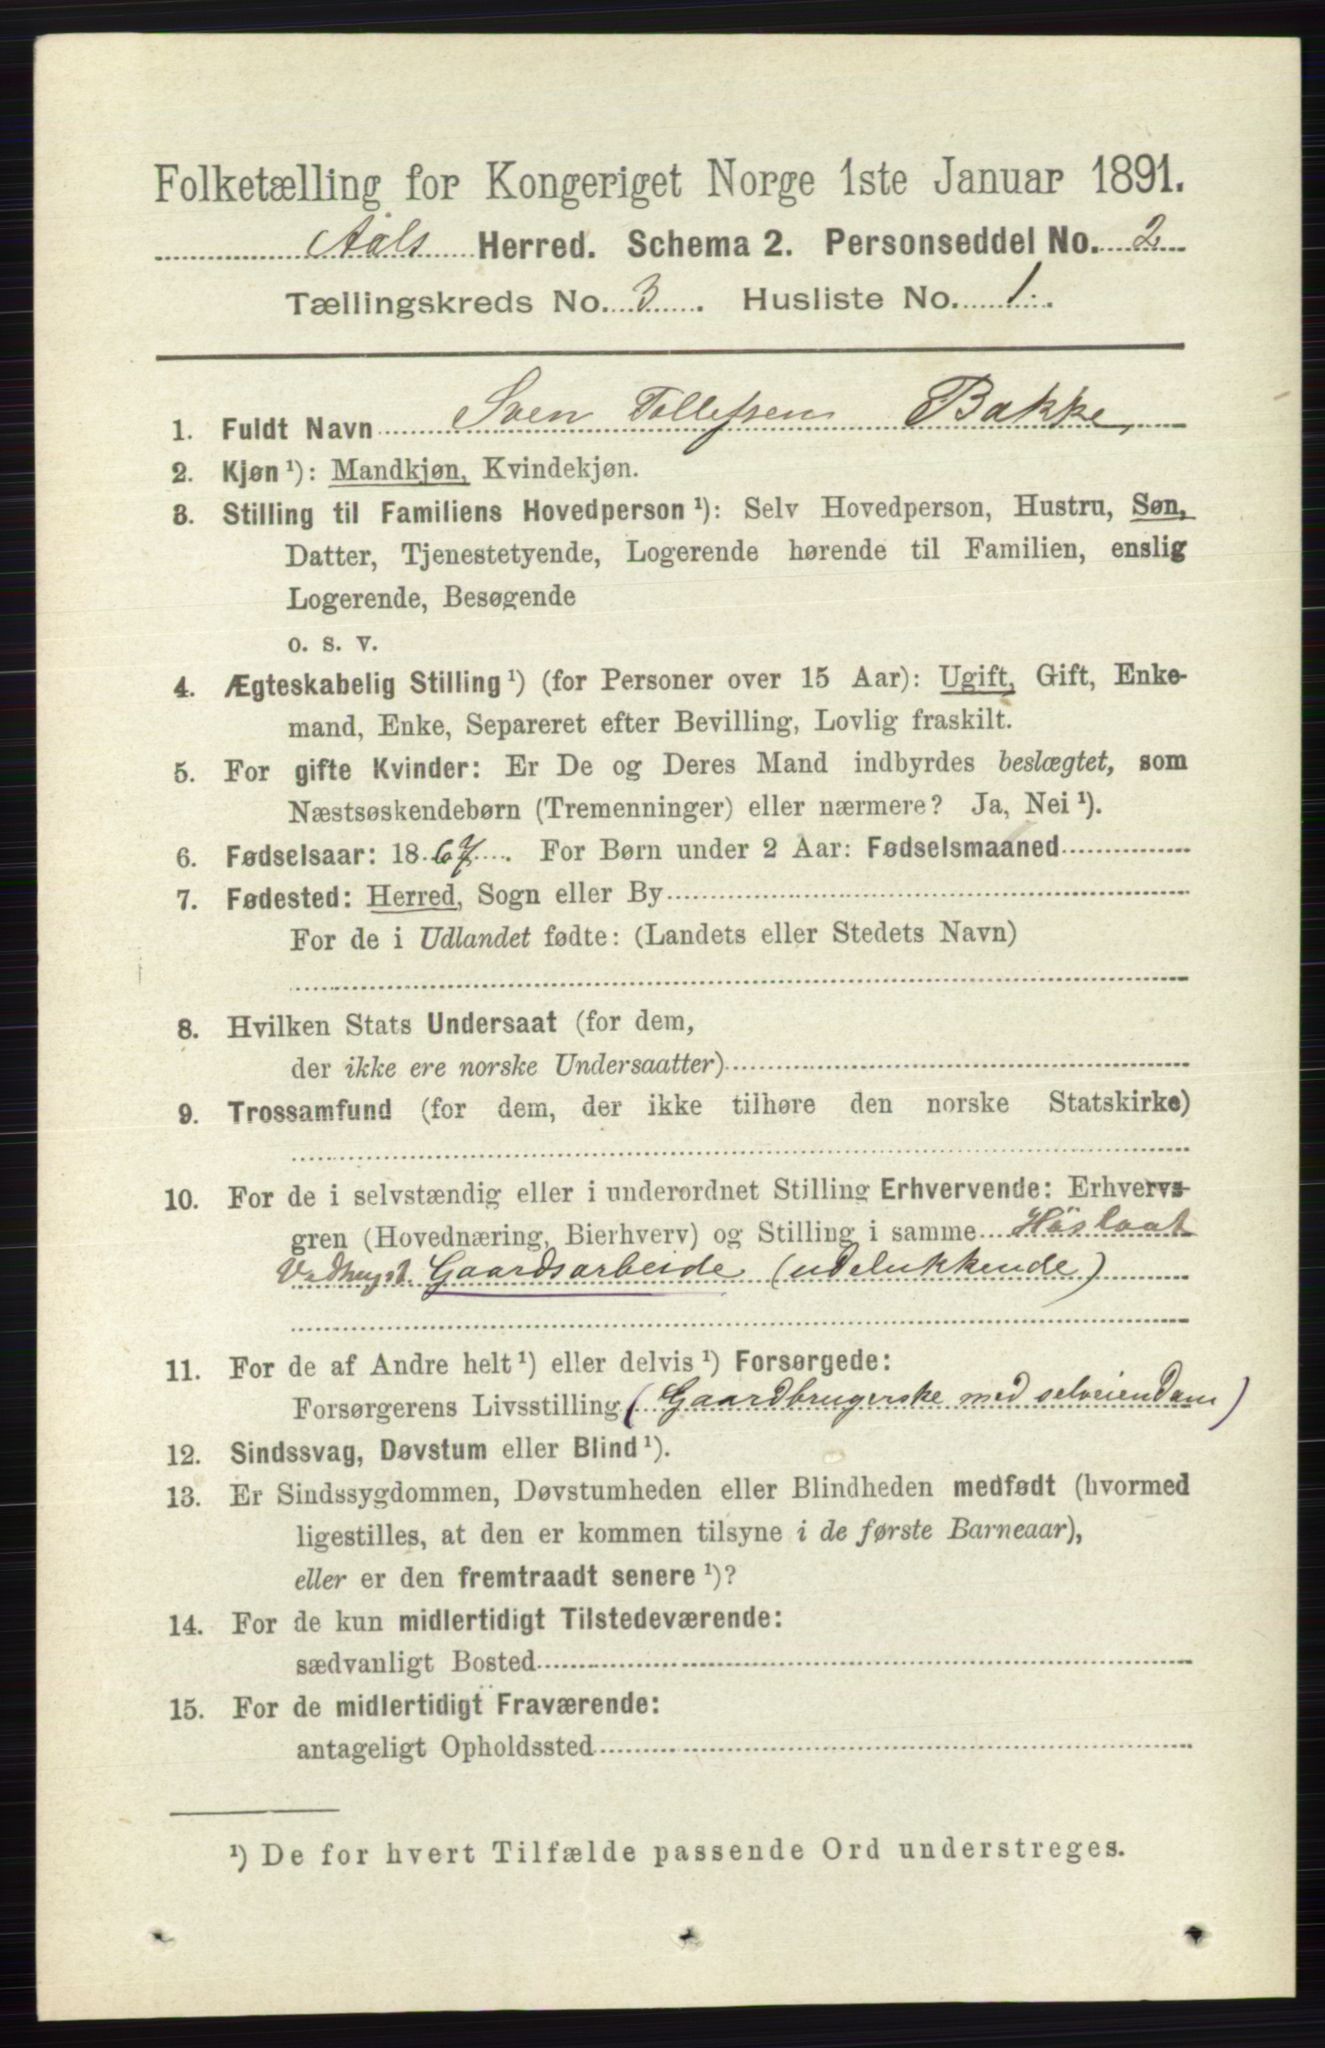 Folketælling for Kongeriget Norge 1ste Januar 1891.
Aals Herred. Schema 2. Personseddel No. 2
Tællingskreds No. 3. Husliste No. 1.
1. Fuldt Navn Sven Tollefsen Bakke,
2. Kjøn ¹): Mandkjøn, Kvindekjøn.
3. Stilling til Familiens Hovedperson ¹): Selv Hovedperson, Hustru, Søn,
Datter, Tjenestetyende, Logerende hørende til Familien, enslig
Logerende, Besøgende
o. s. v.
4. Ægteskabelig Stilling ¹) (for Personer over 15 Aar): Ugift, Gift, Enke-
mand, Enke, Separeret efter Bevilling, Lovlig fraskilt.
5. For gifte Kvinder: Er De og Deres Mand indbyrdes beslægtet, som
Næstsøskendebørn (Tremenninger) eller nærmere? Ja, Nei ¹).
6. Fødselsaar: 1867. For Børn under 2 Aar: Fødselsmaaned
7. Fødested: Herred, Sogn eller By
For de i Udlandet fødte: (Landets eller Stedets Navn)
8. Hvilken Stats Undersaat (for dem,
der ikke ere norske Undersaatter)
9. Trossamfund (for dem, der ikke tilhøre den norske Statskirke)
10. For de i selvstændig eller i underordnet Stilling Erhvervende: Erhvervs-
gren (Hovednæring, Bierhverv) og Stilling i samme Höslaat
Vedhugst. Gaardsarbeide (udelukkende)
11. For de af Andre helt ¹) eller delvis ¹) Forsørgede:
Forsørgerens Livsstilling (Gaardbrugerske med selveiendom)
12. Sindssvag, Døvstum eller Blind ¹).
13. Er Sindssygdommen, Døvstumheden eller Blindheden medfødt (hvormed
ligestilles, at den er kommen tilsyne i de første Barneaar),
eller er den fremtraadt senere ¹)?
14. For de kun midlertidigt Tilstedeværende:
sædvanligt Bosted
15. For de midlertidigt Fraværende:
antageligt Opholdssted
¹) De for hvert Tilfælde passende Ord understreges.